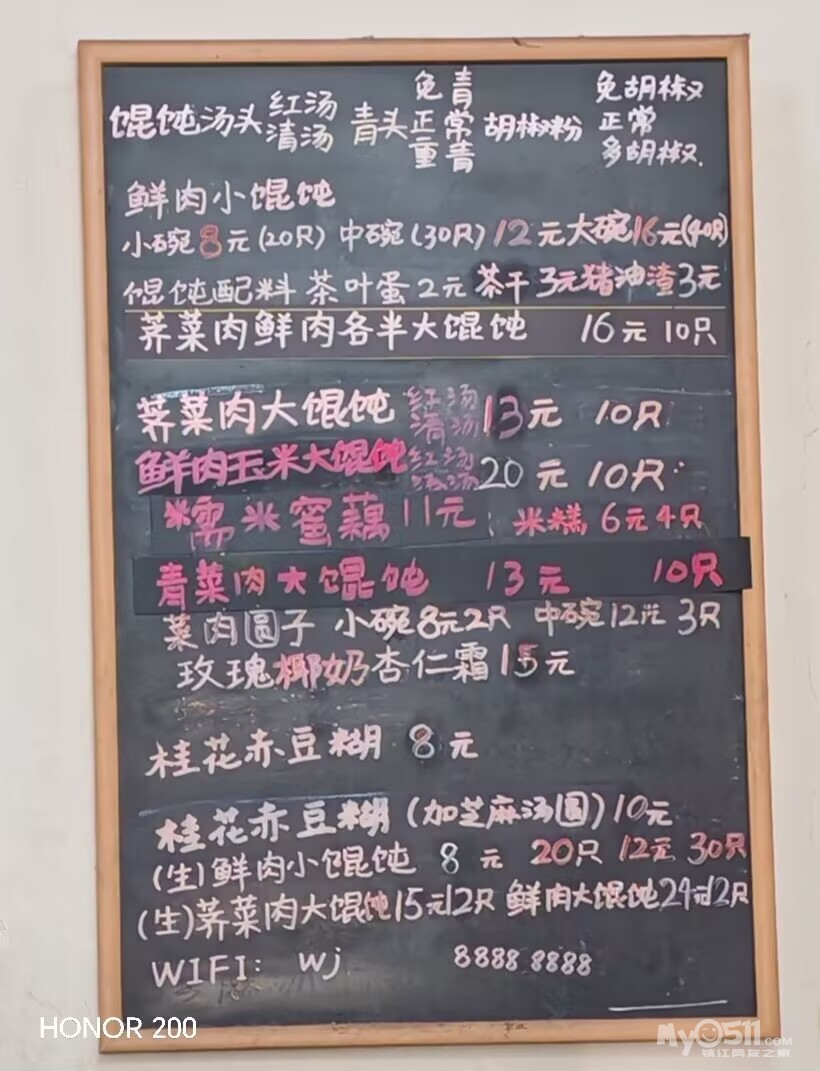 免青 免胡椒
馄饨汤头 红汤 青头 正常 胡椒粉 正常
清汤 重青 多胡椒.
鲜肉小馄饨
小碗8元(20只) 中碗(30只)12元大碗16元(40只)
馄饨配料 茶叶蛋2元 茶干3元猪油渣3元
荠菜肉鲜肉各半大馄饨 16元 10只
荠菜肉大馄饨 红汤 清汤 13元 10只
鲜肉玉米大馄饨 红汤 清汤 20元 10只
糯米蜜藕11元 米糕6元4只
青菜肉大馄饨 13元 10只
菜肉圆子 小碗8元2只 中碗12元 3只
玫瑰椰奶杏仁霜15元
桂花赤豆糊 8元
桂花赤豆糊(加芝麻汤圆)10元
(生)鲜肉小馄饨 8元 20只 12元 30只
(生)荠菜肉大馄饨15元12只 鲜肉大馄饨24元12只
WIFI: wj 8888 8888
HONOR 200
MyO511.COM
镇江网友之家